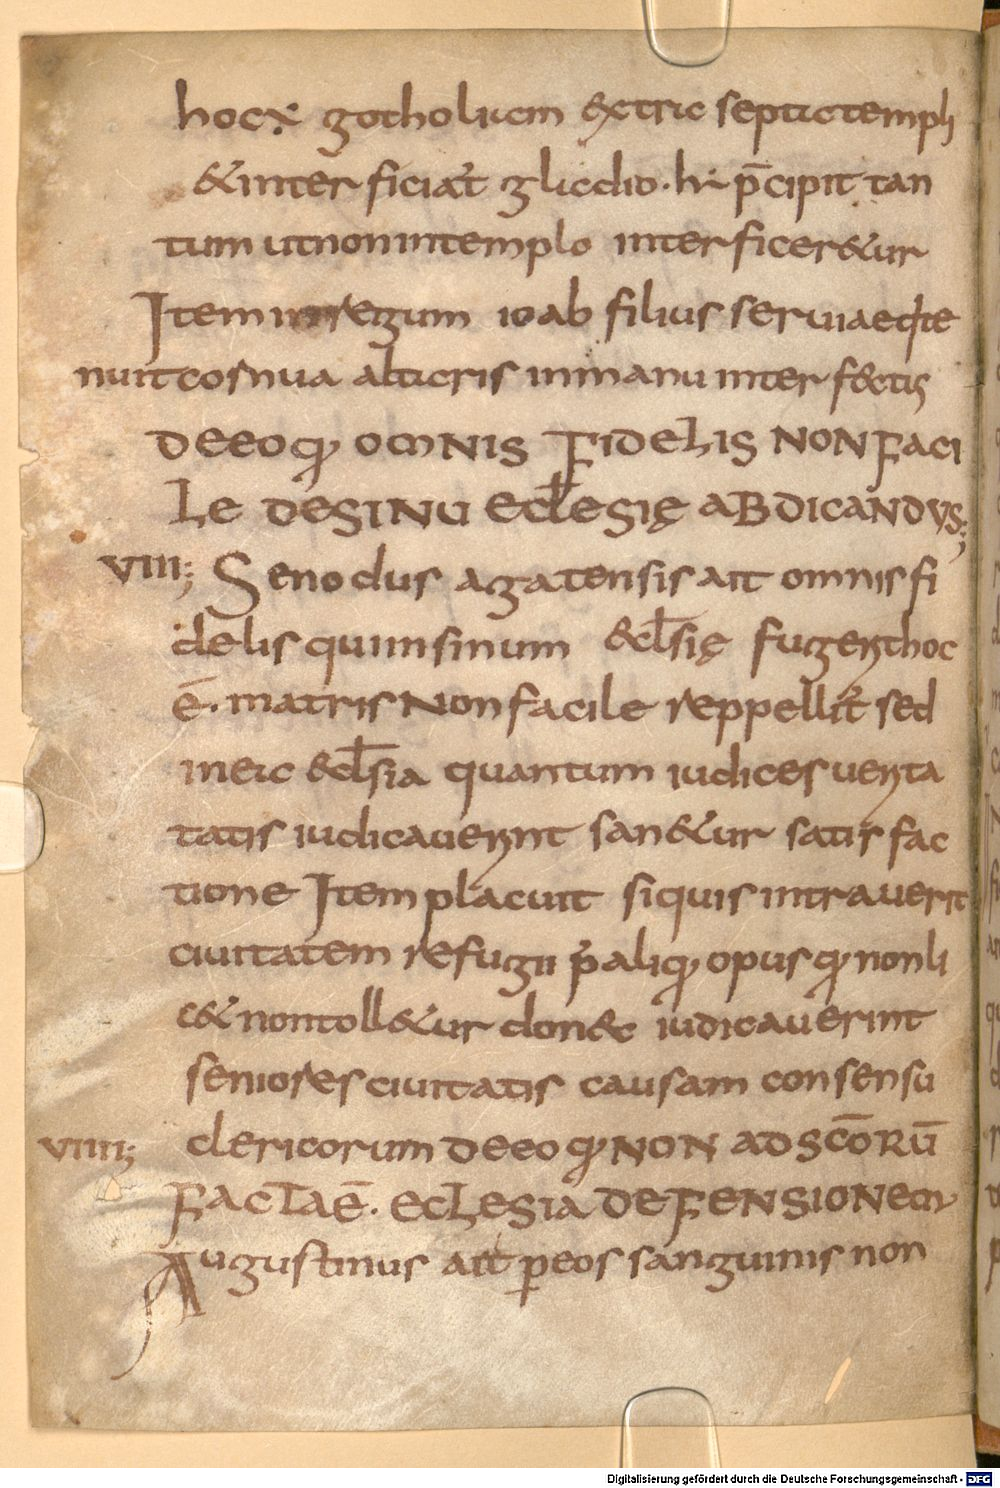 hoc x gotholiam extra septa templi
&interficiat gladio · hic p̄cipit tan
tum ut non in templo interficer&ur
Item in regum ioab filius seruiae qui te
nuit cornua altaris in manu interfectis
DE EO QUOD OMNIS FIDELIS NON FACI
LE DE SINU ECLESIĘ ABDICANDUS;
VIII; Senodus agatensis ait omnis fi
delis qui in sinum &cl̄się fugerit hoc
ē · matris non facile reppellit sed
in eic &cl̄sia quantum iudices uerita
tatis iudicauerint san&ur satisfac
tione Item placuit si quis intrauerit
ciuitatem refugii p aliquod opus quod non li
c& non toll&ur don&c iudicauerint
seniores ciuitatis causam consensu
clericorum DE EO QUOD NON AD SC̄ORŪ
VIIII; FACTA Ē · ECLESIA DEFENSIONEM
Augustinus ait p eos sanguinis non
Digitalisierung gefördert durch die Deutsche Forschungsgemeinschaft - DFG